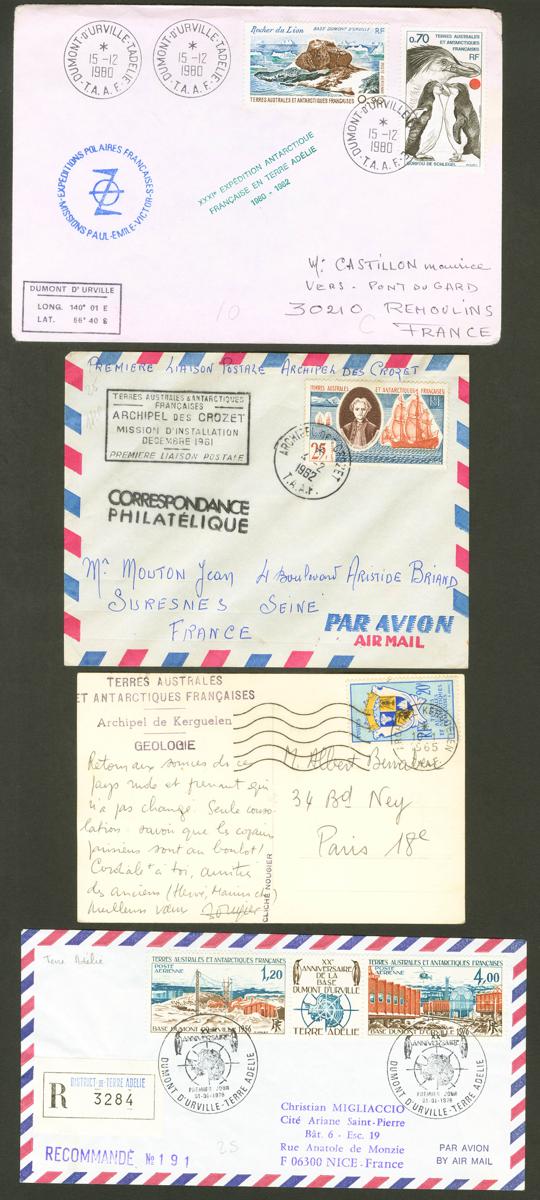 DUMONT-D'URVILLE-T-ADELIE
*
15-12
1980
-T.A.A.F.-
DUMONT-D'URVILLE-T-ADELIE
*
15-12
1980
-T.A.A.F.-
Rocher du Lion
BASE DUMONT D'URVILLE
RF
TERRES AUSTRALES ET ANTARCTIQUES FRANÇAISES
0,70
TERRES AUSTRALES ET ANTARCTIQUES FRANÇAISES
RF
GORFOU DE SCHLEGEL
DUMONT-D'URVILLE
*
15-12
1980
-T.A.A.F.-
EXPÉDITIONS POLAIRES FRANÇAISES
-MISSIONS PAUL-EMILE-VICTOR-
XXXIe EXPÉDITION ANTARCTIQUE
FRANÇAISE EN TERRE ADÉLIE
1980 - 1982
DUMONT D'URVILLE
LONG. 140° 01 E
LAT. 66° 40 S
10
C
Mr CASTILLON Maurice
VERS - PONT DU GARD
30210 REMOULINS
FRANCE
PREMIÈRE LIAISON POSTALE ARCHIPEL DES CROZET
25
TERRES AUSTRALES & ANTARCTIQUES
FRANÇAISES
ARCHIPEL DES CROZET
MISSION D'INSTALLATION
DECEMBRE 1961
PREMIÈRE LIAISON POSTALE
TERRES AUSTRALES ET ANTARCTIQUES FRANÇAISES
25F
ARCHIPEL DES CROZET
1962
T.A.A.F.
CORRESPONDANCE
PHILATÉLIQUE
Mr MOUTON Jean 4 Boulevard ARISTIDE BRIAND
SURESNES SEINE
FRANCE
PAR AVION
AIR MAIL
TERRES AUSTRALES
ET ANTARCTIQUES FRANÇAISES
Archipel de Kerguelen
GEOLOGIE
20F
KERGUELEN
1965
Retour aux sources du ce
pays rude et prenant qui
n'a pas changé. Seule conso-
lation : savoir que les copains
parisiens sont au boulot!
Cordialt à toi, amitiés
des anciens (Hervé,
meilleurs vœux
M. Albert
34 Bd Ney
Paris 18e
CLICHÉ NOUGIER
Terre Adélie
POSTE AÉRIENNE
1,20
TERRES AUSTRALES ET ANTARCTIQUES FRANÇAISES
BASE DUMONT D'URVILLE 1956
XXe
ANNIVERSAIRE
DE LA
BASE
DUMONT D'URVILLE
TERRE ADÉLIE
TERRES AUSTRALES ET ANTARCTIQUES FRANÇAISES
POSTE AÉRIENNE
4,00
BASE DUMONT D'URVILLE 1976
ANNIVERSAIRE
PREMIER JOUR
01-01-1976
DUMONT D'URVILLE-TERRE ADELIE
ANNIVERSAIRE
PREMIER JOUR
01-01-1976
DUMONT D'URVILLE-TERRE ADELIE
DISTRICT de TERRE ADÉLIE
R 3284
RECOMMANDÉ No 191
25
Christian MIGLIACCIO
Cité Ariane Saint-Pierre
Bât. 6 - Esc. 19
Rue Anatole de Monzie
F 06300 NICE-France
PAR AVION
BY AIR MAIL